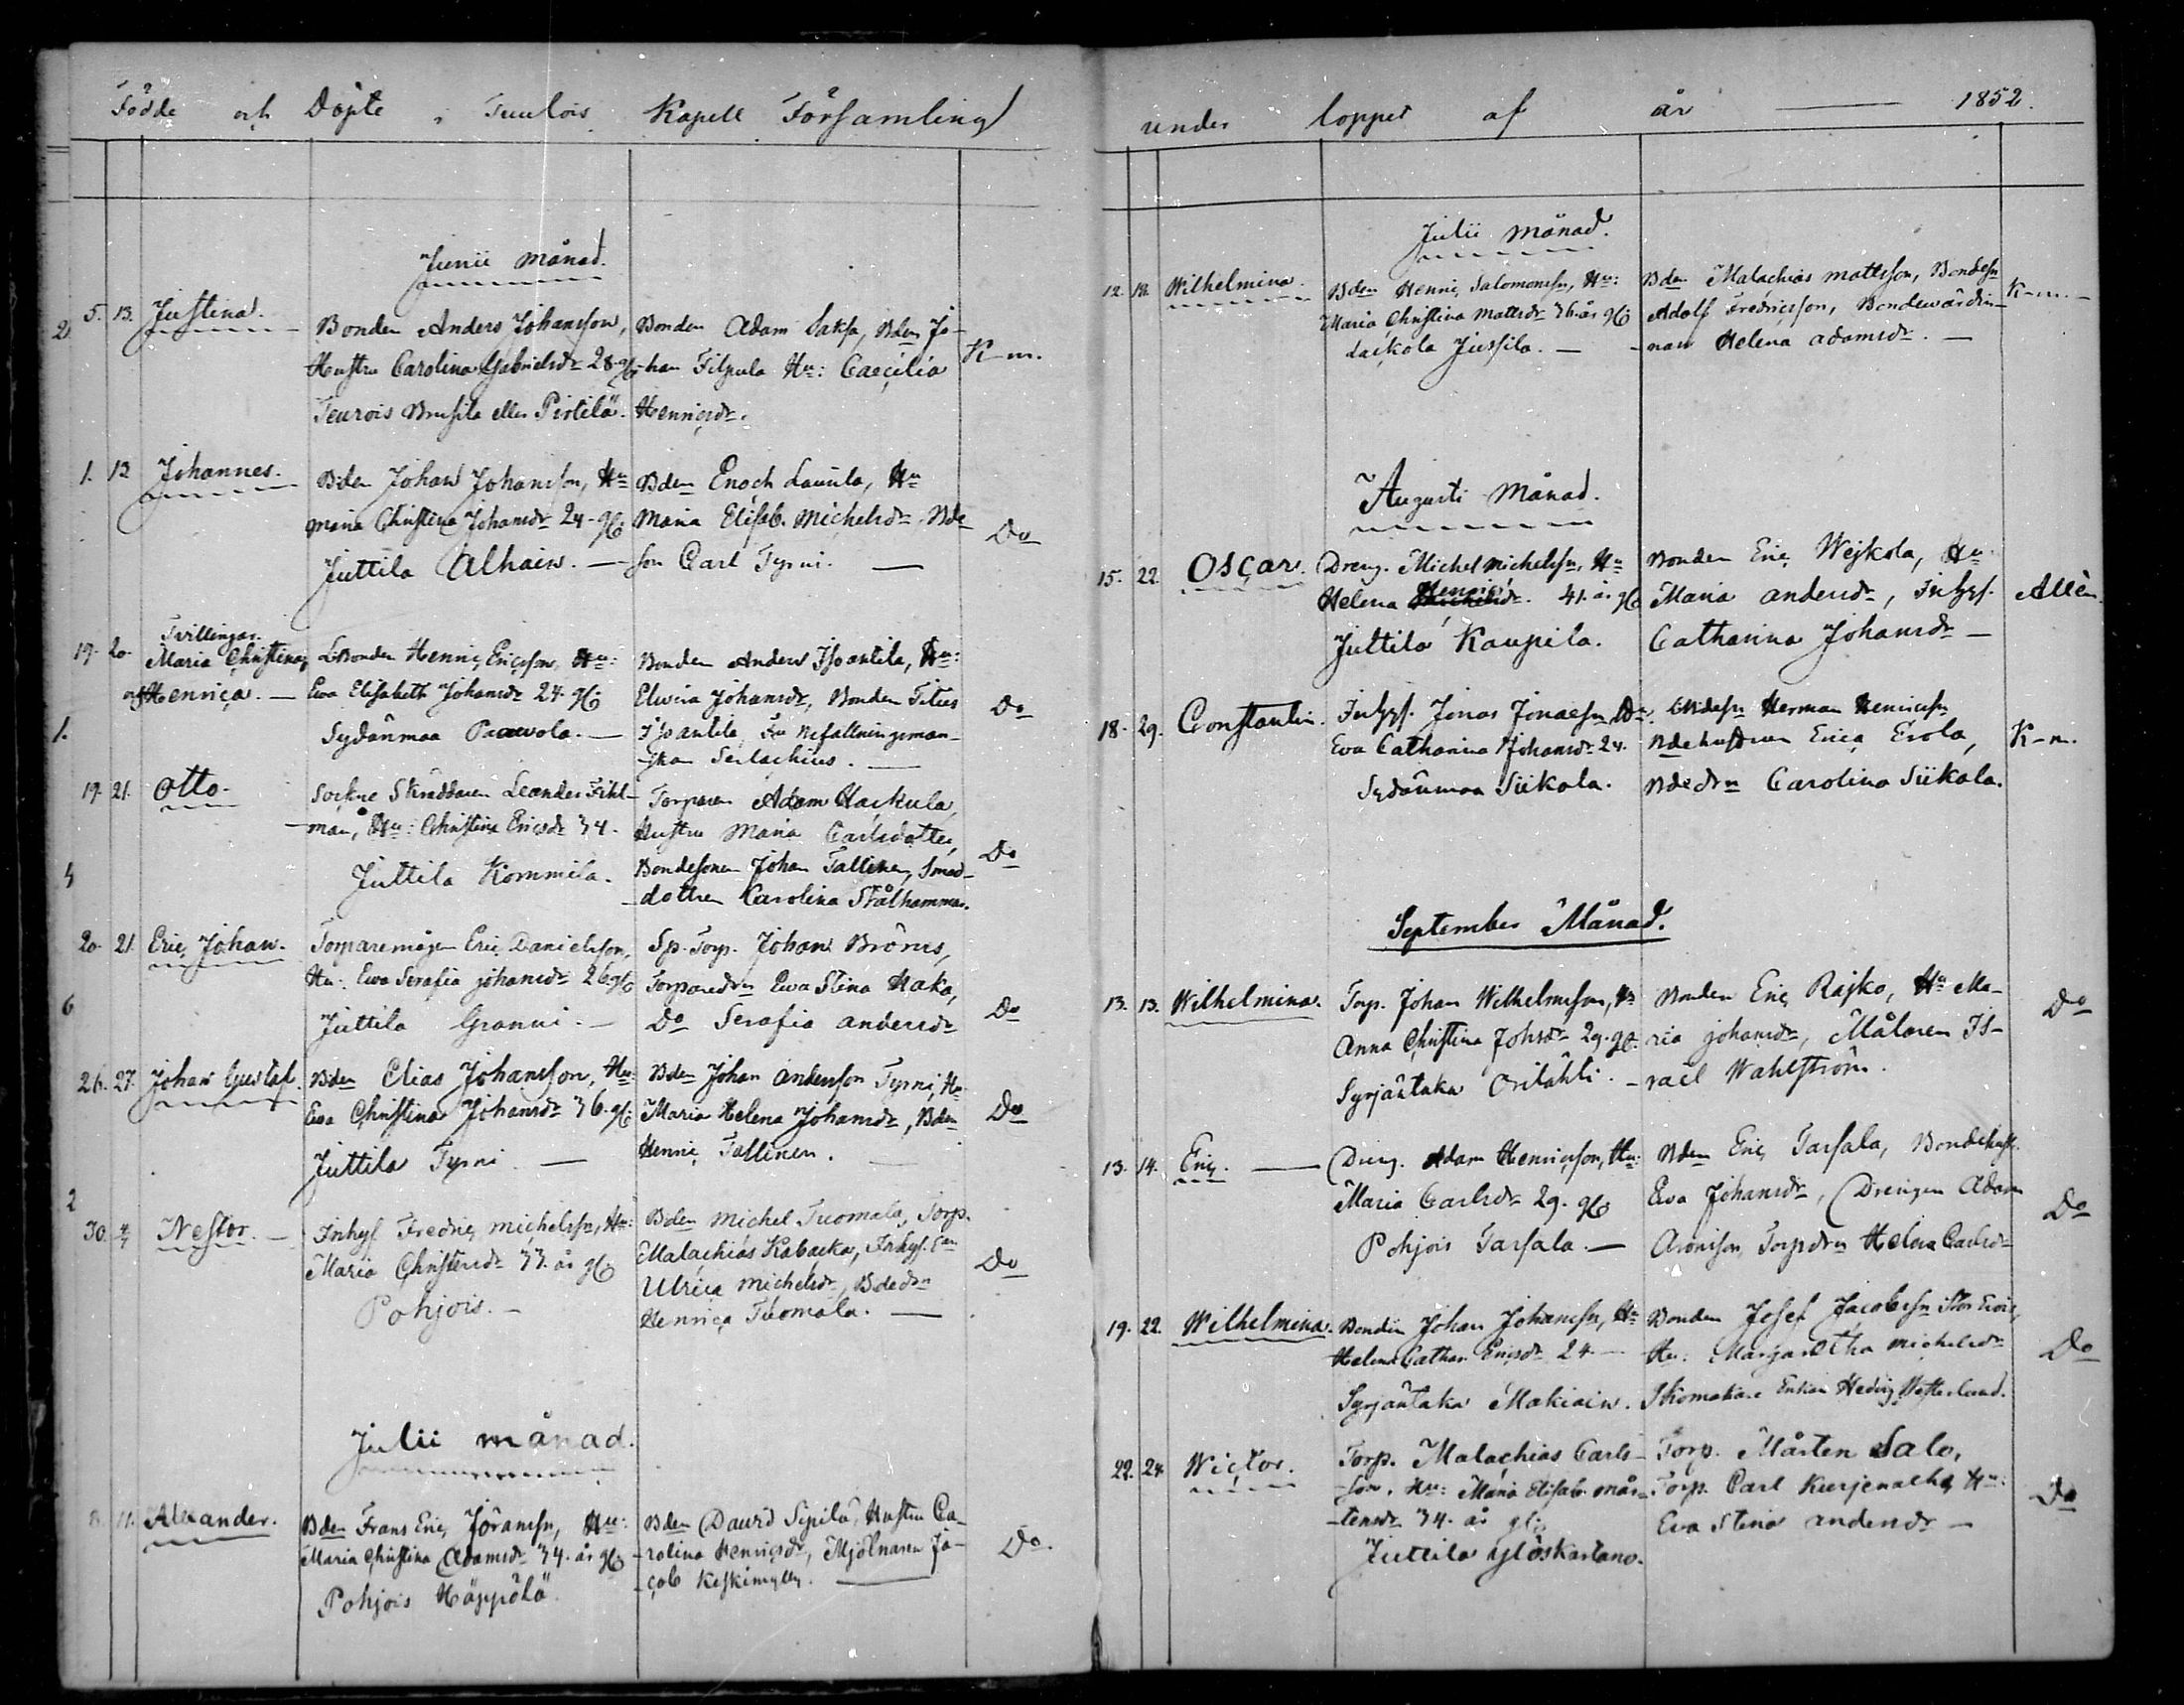 Födde och Döpte i Tuulois Kapell Församling
Junii månad.
5. 13. Justina.
Bonden Anders Johansson,
Hustru Carolina Gabrielsdr 28. gl.
Teurois Brusila eller Pirtilä.
Bonden Adam Saksa, Bden Jo-
han Filpula Hu: Caecilia
Henricsdr.
K-m.
1. 13 Johannes.
Bden Johan Johansson, Hu
Maria Christina Johansdr 24. gl.
Juttila Alhain. —
Bden Enoch Laurila, Hu
Maria Elisab. Michelsdr, Bde
son Carl Tyrni. —
Do
19. 20. Tvillingar.
Maria Christina,
och Henrica. —
LBonden Henric Ericsson, Hu:
Eva Elisabeth Johansdr 24. gl.
Sydänmaa Paavola. —
Bonden Anders Isoantila, Hu:
Elwira Johansdr, Bonden Titus
Isoantila, Fru Befallningsman-
skan Serlachius. —
Do
19. 21. Otto.
Sockne Skräddaren Leander Fihl-
man, Hu: Christina Ericsdr 34.
Juttila Kommila.
Torparen Adam Hackula,
Hustru Maria Carlsdotter,
Bondesonen Johan Tallinen, Smed-
dottren Carolina Stålhammar.
Do
20. 21. Eric Johan.
Torparemågen Eric Danielsson,
Hu: Ewa Serafia Johansdr 26 gl.
Juttila Granni. —
Sp. Torp. Johan Brönus,
Torparedrn Ewa Stina Haka,
Do Serafia Andersdr
Do
26. 27. Johan Gustaf.
Bden Elias Johansson, Hu:
Eva Christina Johansdr 36. gl.
Juttila Tyrni. —
Bden Johan Andersson Tyrni, Hu
Maria Helena Johansdr, Bden
Henric Tallinen. —
Do
30. 4/7 Nestor. —
Inhys Fredric Michelsson, Hu:
Maria Christersdr 33. år gl.
Pohjois. —
Bden Michel Tuomala, Torp.
Malachias Kabacka, Inhys. Enk
Ulrica Michelsdr, Bdedrn
Henrica Tuomala. —
Do
Julii månad.
8. 11. Alexander.
Bden Frans Eric Jöransson, Hu:
Maria Christina Adamsdr 34. år gl.
Pohjois Häppölä.
Bden David Sipilä, Hustru Ca-
rolina Henricsdr, Mjölnaren Ja-
cob Keskimylly. —
Do.
under loppet af år — 1852.
Julii månad.
12. 18. Wilhelmina.
Bden Henric Salomonsson, Hu:
Maria Christina Mattsdr 36. år gl.
Laikola Jussila. —
Bden Malachias Mattsson, Bondesn
Adolf Fredricsson, Bondewärdin-
nan Helena Adamsdr. —
K-m. —
Augusti Månad.
15. 22. Oscar.
Dreng. Michel Michelsson, Hu
Helena Henricsdr. 41. år gl
Juttila Kaupila.
Bonden Eric Wejkola, Hu
Maria Andersdr, Inhys.
Catharina Johansdr —
Allèn.
18. 29. Constantin.
Inhys. Jonas Jonasson, Hu
Eva Catharina Johansdr 24.
Sydänmaa Siikala.
Bdesn Herman Henricsson
Bdehustrun Erica Erola,
Bdedrn Carolina Siikala.
K-m.
September Månad.
13. 13. Wilhelmina.
Torp. Johan Wilhelmsson, Hu
Anna Christina Johsdr 29. gl.
Syrjäntaka Orilahti. —
Bonden Eric Rajko, Hu Ma-
ria Johansdr, Målaren Is-
rael Wahlström.
Do
13. 14. Eric. —
Dreng. Adam Henricsson, Hu:
Maria Carlsdr 29. gl
Pohjois Tarsala. —
Bden Eric Tarsala, Bondehust.
Eva Johansdr, Drengen Adam
Aronsson, Torpdrn Helena Carlsdr
Do
19. 22. Wilhelmina.
Bonden Johan Johansson, Hu
Helena Cathar. Ericsdr 24. —
Syrjäntaka Makiain.
Bonden Josef Jacobsson Stor Evois,
Hu: Margaretha Michelsdr
Skomakare Enkan Hedvig Westerlund.
Do
22. 24. Wictor.
Torp. Malachias Carls-
son, Hu: Maria Elisab. Mår-
tensdr 34. år gl.
Juttila Ylöskartano.
Torp. Mårten Salo,
Torp. Carl Kurjenalho, Hu:
Eva Stina Andersdr —
Do